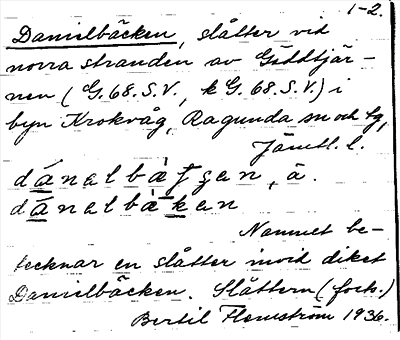 1-2.
Danielbäcken, slåtter vid
norra stranden av Gäddtjär-
nen (G. 68. S.V., k G. 68. S.V.) i
byn Krokvåg, Ragunda sn och tg,
Jämtl. l.
Namnet be-
tecknar en slåtter invid diket
Danielbäcken. Slåttern (fork.)
Bertil Flemström 1936.